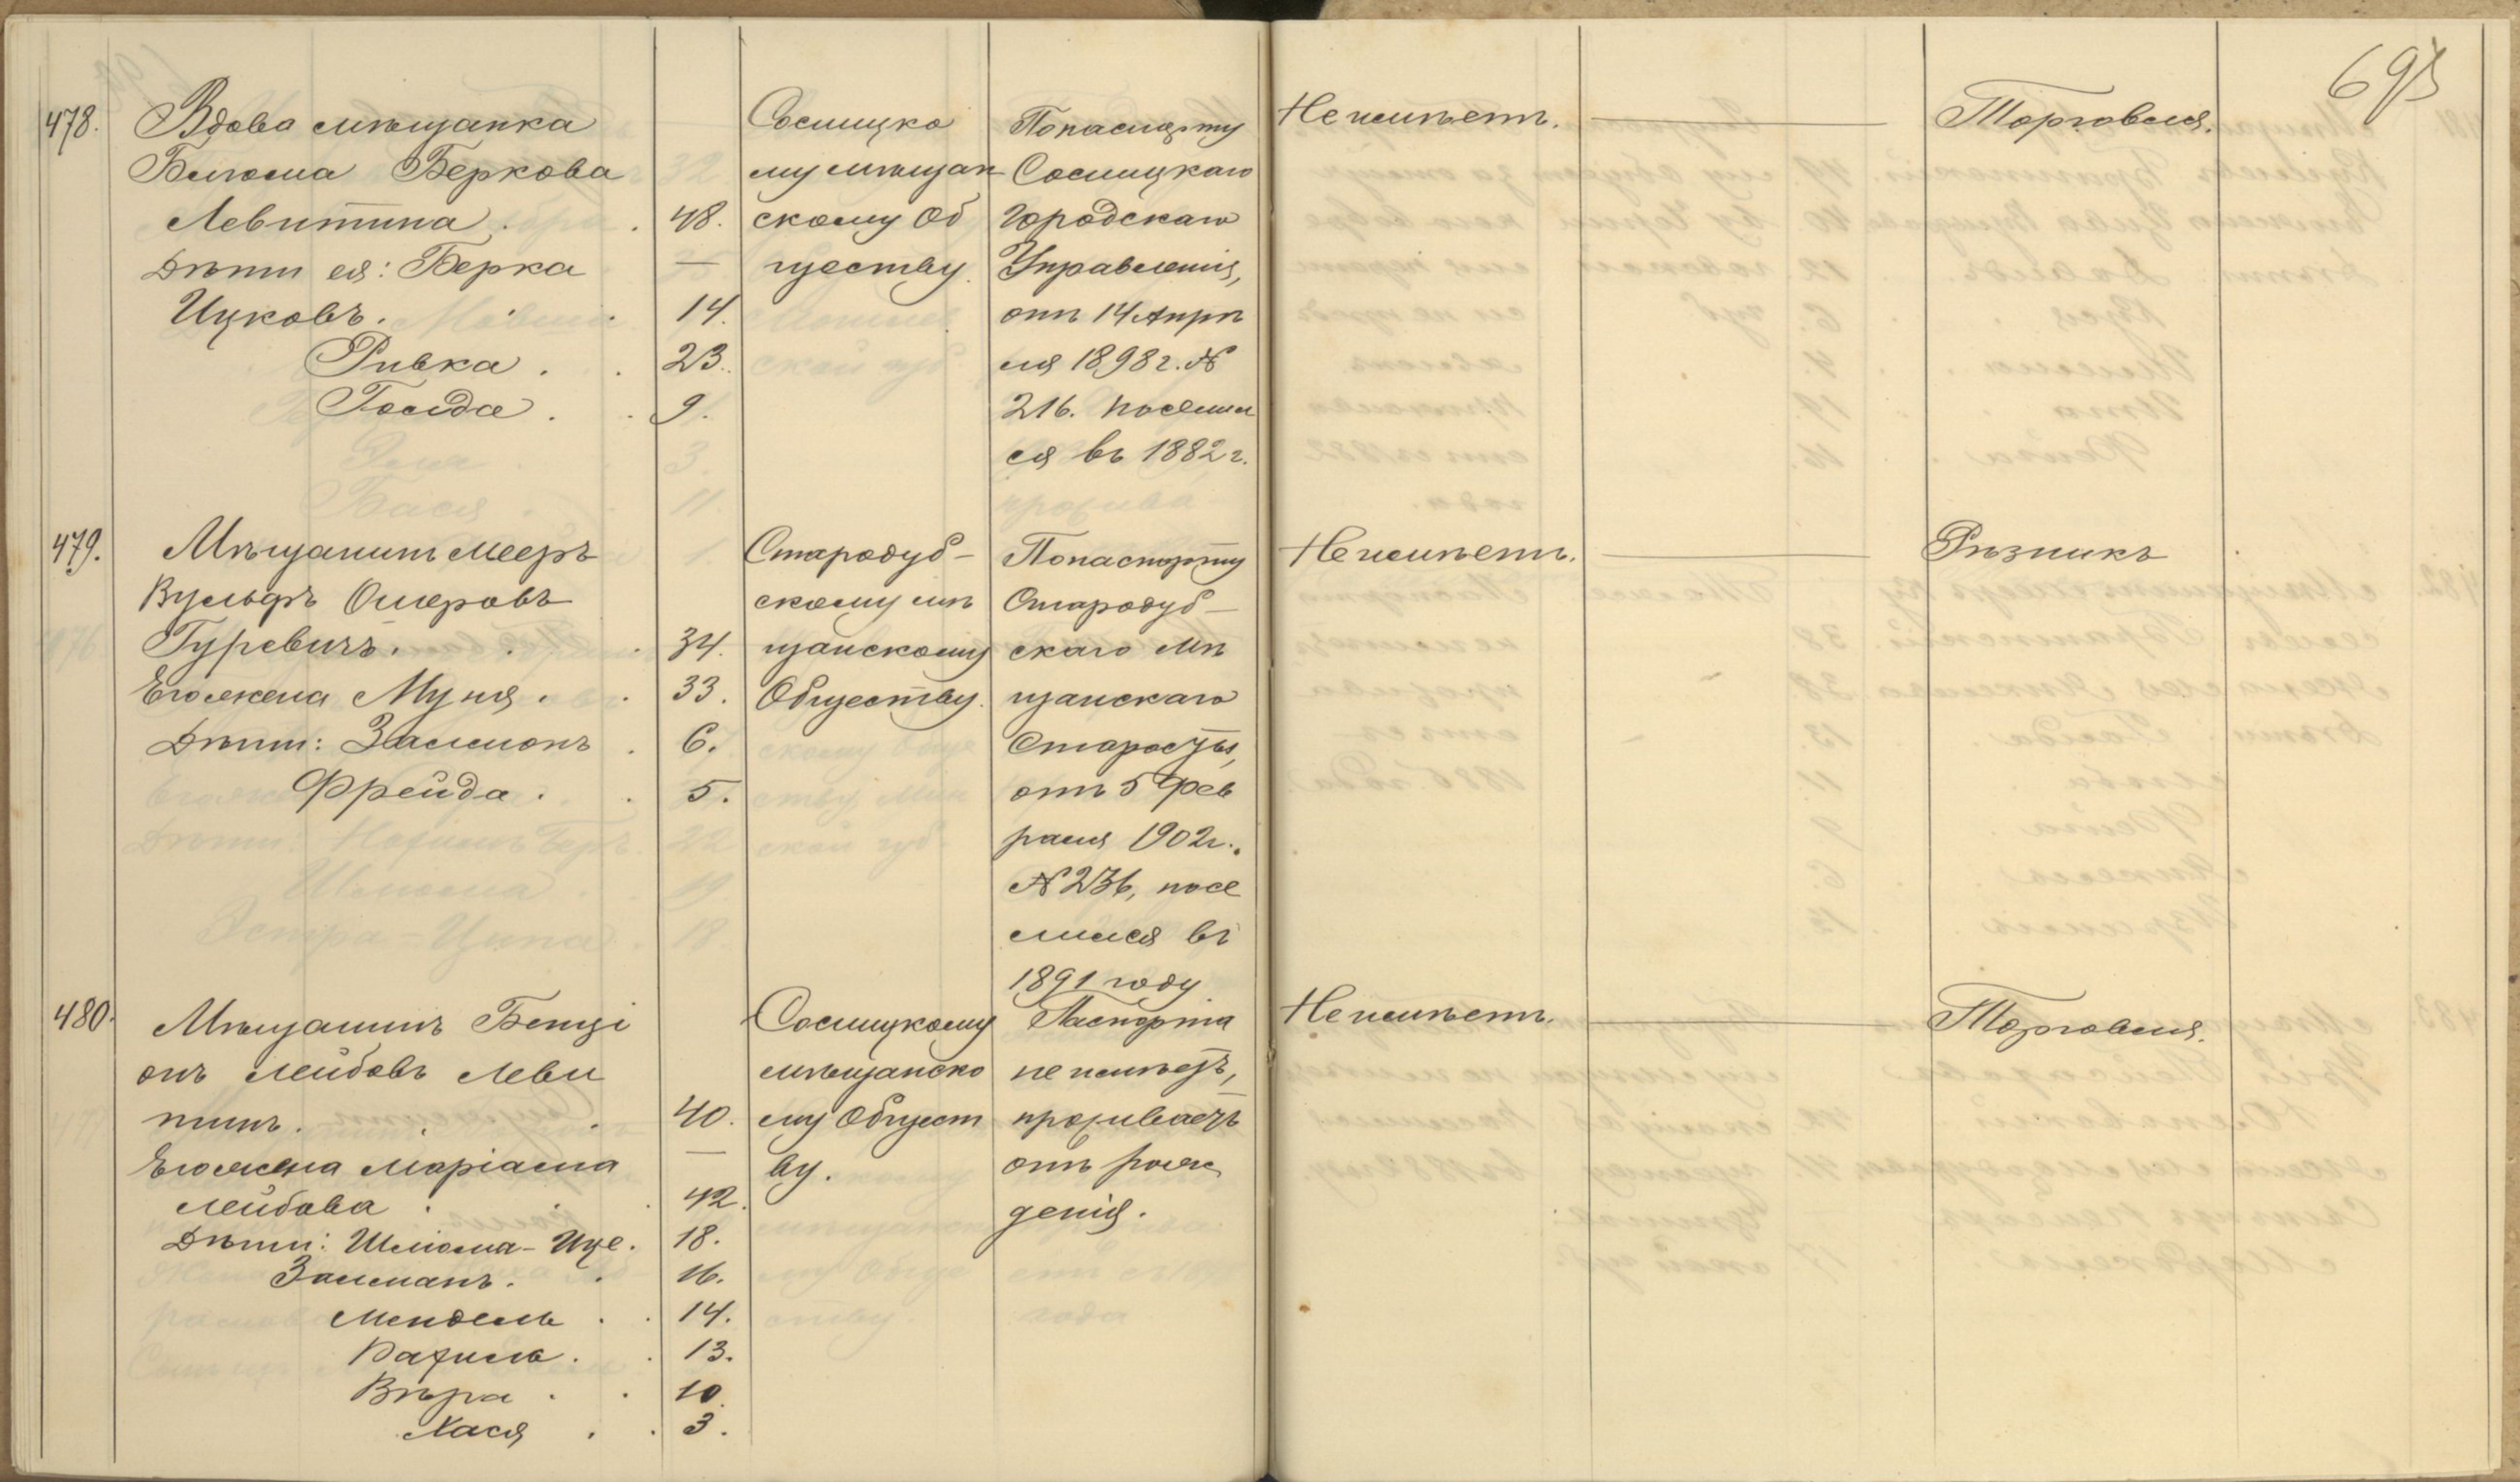 695
478.
Вдова мѣщанка
Блюма Беркова
Левитина . . 48.
Дѣти ея: Берка —
Ицковъ. . . 14.
Ривка . . 23.
Голда . . 9.
Сосницко
му мѣщан
скому Об
ществу.
По паспорту
Сосницкаго
Городскаго
Управленія,
отъ 14 Апрѣ
ля 1898 г. №
216. Посели
ся въ 1882 г.
Не имѣетъ.
Торговля.
479.
Мѣщанинъ Мееръ
Вульфъ Ошеровъ
Гуревичъ. . . 34.
Его жена Муня . . 33.
Дѣти: Залмонъ . 6.
Фрейда . . 5.
Стародуб-
скому мѣ
щанскому
Обществу.
По паспорту
Стародуб-
скаго Мѣ
щанскаго
Старосты,
отъ 5 Фев
раля 1902 г.
№ 236, посе
лился въ
1891 году
Не имѣетъ.
Рѣзникъ
480.
Мѣщанинъ Бенці
онъ Лейбовъ Леви
тинъ. . . 40.
Его жена Маріаша —
Лейбова . . . 42.
Дѣти: Шлiома-Ице. 18.
Залманъ. . 16.
Мендель . . 14.
Рахиль. . 13.
Вѣра . . 10.
Хася . . 3.
Сосницкому
мѣщанско
му Общест
ву.
Паспорта
не имѣетъ,
проживаетъ
отъ рож
денія.
Не имѣетъ.
Торговля.